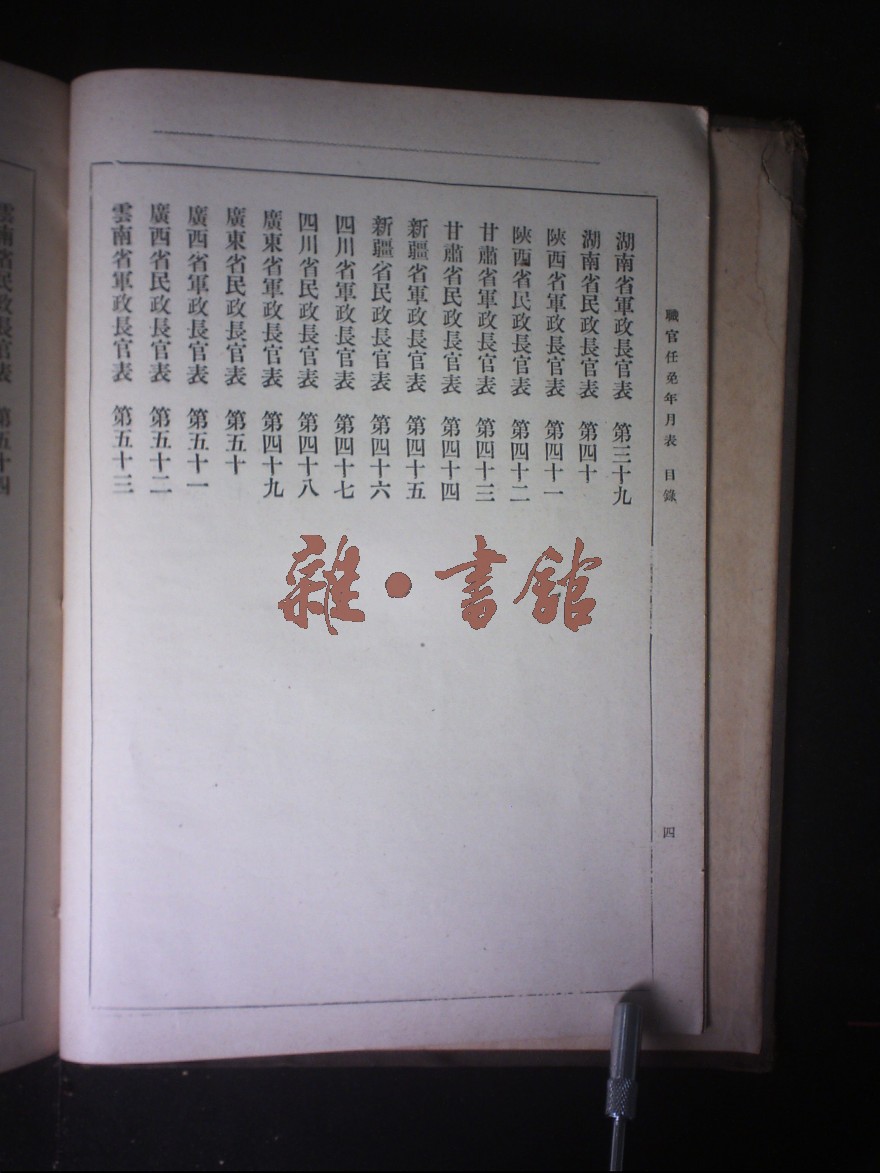 職官任免年月表 目錄
四
湖南省軍政長官表 第三十九
湖南省民政長官表 第四十
陝西省軍政長官表 第四十一
陝西省民政長官表 第四十二
甘肅省軍政長官表 第四十三
甘肅省民政長官表 第四十四
新疆省軍政長官表 第四十五
新疆省民政長官表 第四十六
四川省軍政長官表 第四十七
四川省民政長官表 第四十八
廣東省軍政長官表 第四十九
廣東省民政長官表 第五十
廣西省軍政長官表 第五十一
廣西省民政長官表 第五十二
雲南省軍政長官表 第五十三
雲南省民政長官表 第五十四
雜·書館